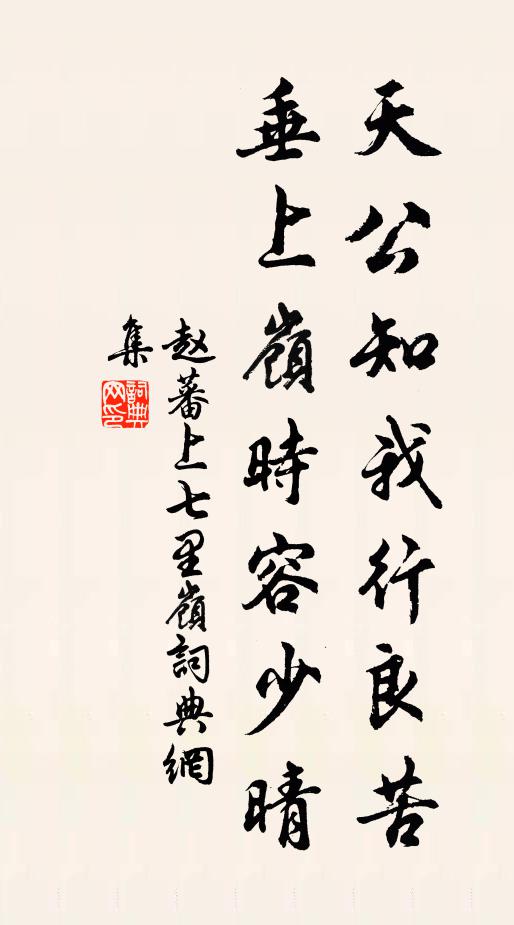 天公知我行良苦
垂上嶺時容少晴
赵蕃上七里嶺詞典網
集
詞典網印